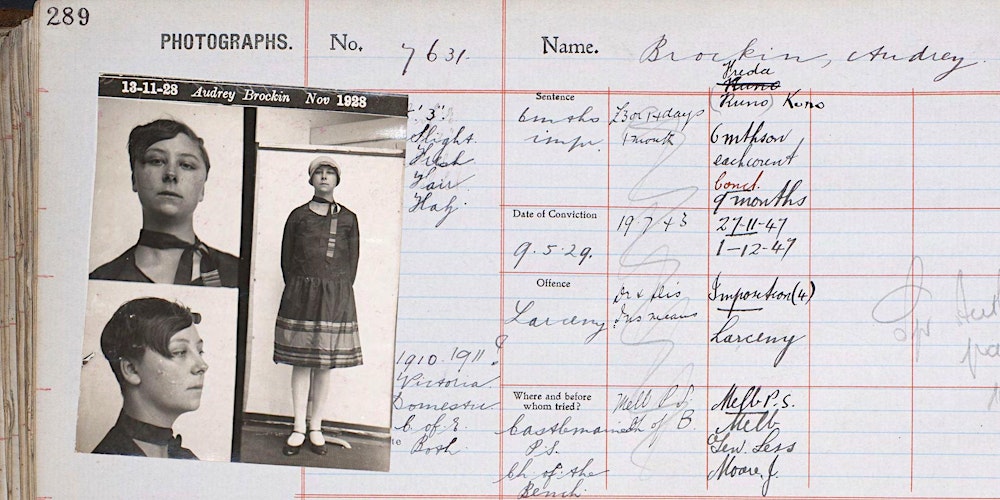 289
PHOTOGRAPHS.
No. 7631.
Name. Brockin, Audrey.
Freda
Runo) Kuno
13-11-28 Audrey Brockin Nov 1928
3".
Slight.
Fresh
Fair
Haz.
1910. 1911?
Victoria
Domestic
C. of E.
Both
Sentence
6 mths
impr.
£3 or 14 days
1 month
6 mths on
each
Concl.
9 months
Date of Conviction
9.5.29.
19.7.43
27-11-47
1-12-47
Offence
Larceny
Ins means
Imposition (4)
Larceny
Where and before
whom tried?
Castlemaine
P.S.
Ch of the
Bench.
Melb P.S.
Ch of B.
Melb P.S.
Melb
Gen. Sess
Moore, J.